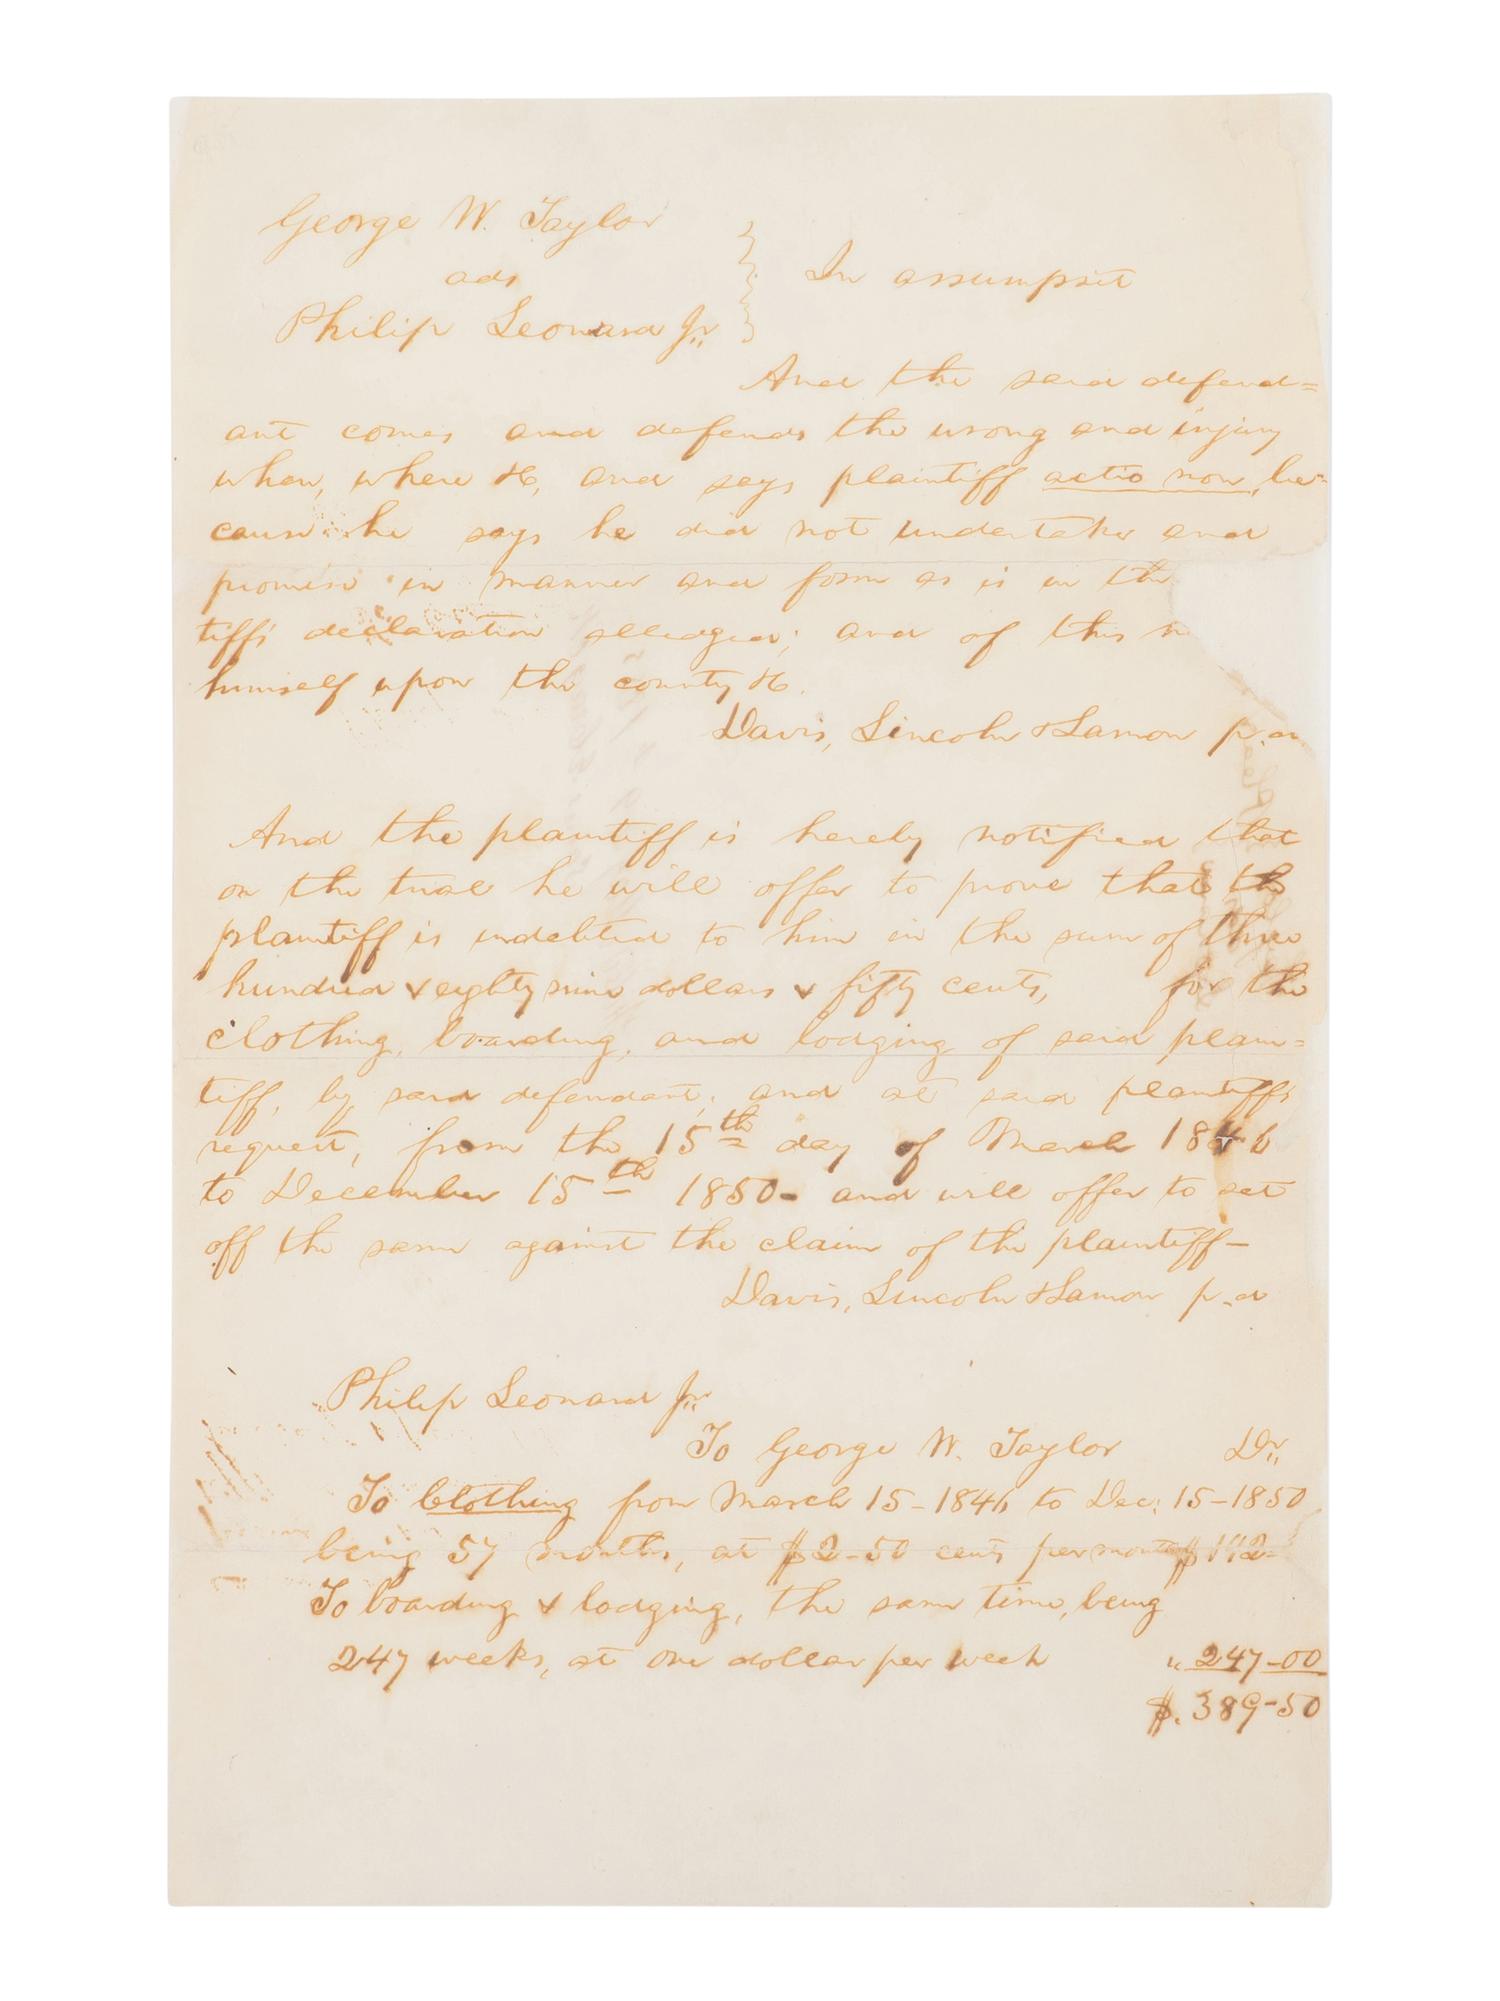 George W. Taylor
ads
Philip Leonard Jr.
In assumpsit
And the said defend=
ant comes and defends the wrong and injury
when, where &c, and says plaintiff actio non, be=
cause he says he did not undertake and
promise in manner and form as is in the
tiff's declaration alledged; and of this
himself upon the county &c.
Davis, Lincoln & Lamon p.
And the plaintiff is hereby notified that
on the trial he will offer to prove that the
plaintiff is indebted to him in the sum of three
hundred & eighty nine dollars & fifty cents, for the
clothing, boarding, and lodging of said plain=
tiff, by said defendant; and at said plaintiffs
request, from the 15th day of March 1846
to December 15th 1850- and will offer to set
off the same against the claim of the plaintiff-
Davis, Lincoln & Lamon p.d
Philip Leonard Jr.
To George W. Taylor Dr.
To Clothing from March 15-1846 to Dec: 15-1850
being 57 months, at $2-50 cents per month $142=
To boarding & lodging, the same time, being
247 weeks, at one dollar per week " 247-00
$. 389-50